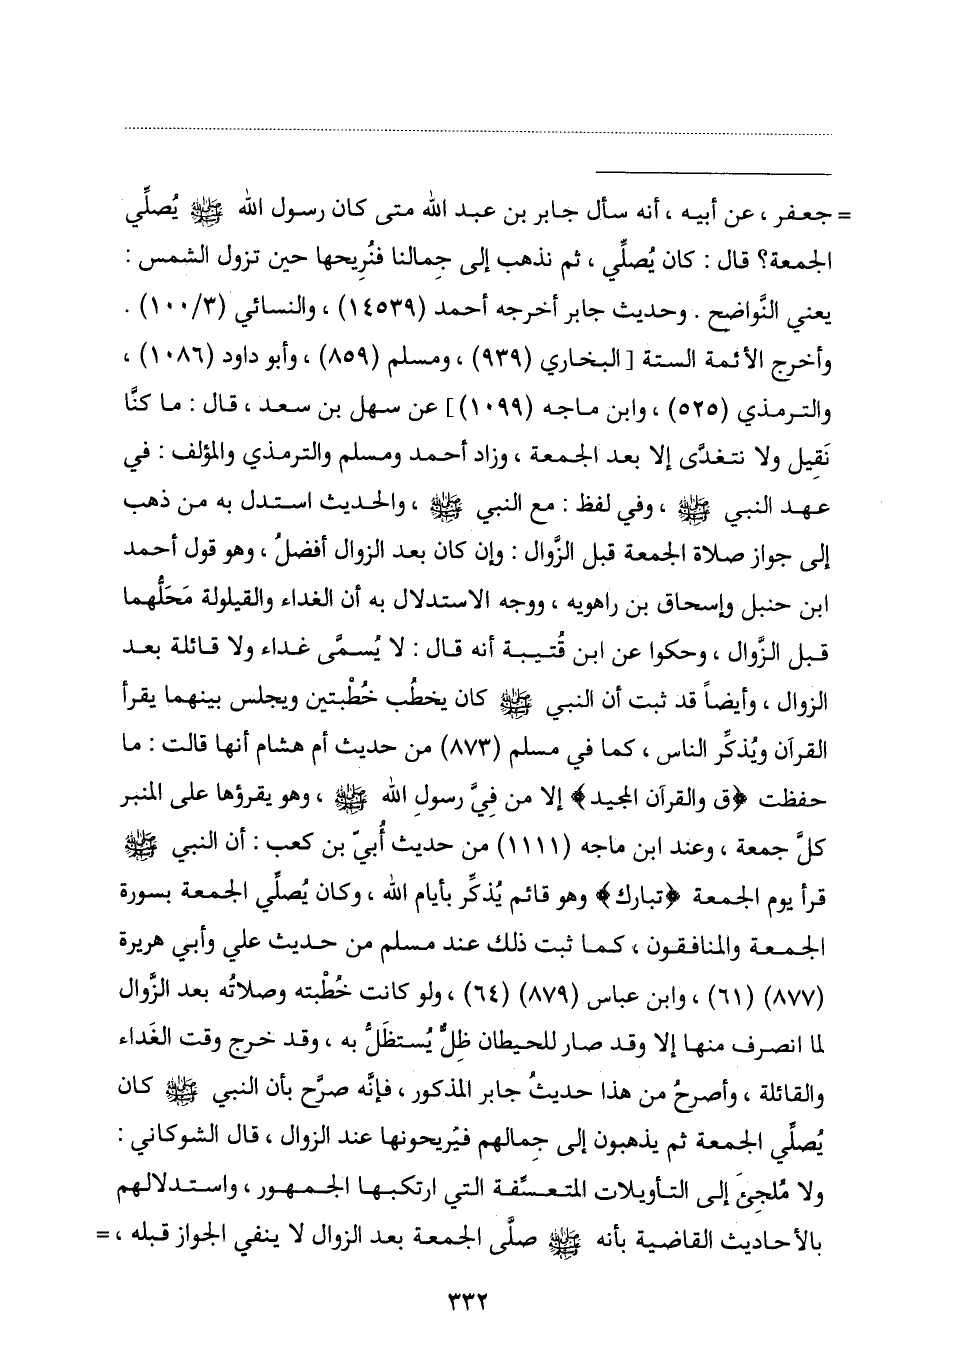 = جعفر ، عن أبيه ، أنه سأل جابر بن عبد الله متى كان رسول الله ﷺ يُصلِّي
الجمعة؟ قال : كان يُصلِّي ، ثم نذهب إلى جِمالنا فنُريحها حين تزول الشمس :
يعني النَّواضح . وحديث جابر أخرجه أحمد (١٤٥٣٩) ، والنسائي (١٠٠/٣) .
وأخرج الأئمة الستة [البخاري (٩٣٩) ، ومسلم (٨٥٩) ، وأبو داود (١٠٨٦) ،
والترمذي (٥٢٥) ، وابن ماجه (١٠٩٩)] عن سهل بن سعد ، قال : ما كنَّا
نَقِيل ولا نتغدَّى إلا بعد الجمعة ، وزاد أحمد ومسلم والترمذي والمؤلف : في
عهد النبي ﷺ ، وفي لفظ : مع النبي ﷺ ، والحديث استدل به من ذهب
إلى جواز صلاة الجمعة قبل الزَّوال : وإن كان بعد الزوال أفضلُ ، وهو قول أحمد
ابن حنبل وإسحاق بن راهويه ، ووجه الاستدلال به أن الغداء والقيلولة مَحَلُّهما
قبل الزَّوال ، وحكوا عن ابن قُتيبة أنه قال : لا يُسمَّى غداء ولا قائلة بعد
الزوال ، وأيضاً قد ثبت أن النبي ﷺ كان يخطُب خُطْبتين ويجلس بينهما يقرأ
القرآن ويُذكِّر الناس ، كما في مسلم (٨٧٣) من حديث أم هشام أنها قالت : ما
حفظت ﴿ق والقرآن المجيد﴾ إلا من فِيَّ رسولِ الله ﷺ ، وهو يقرؤها على المنبر
كلَّ جمعة ، وعند ابن ماجه (١١١١) من حديث أُبيّ بن كعب : أن النبي ﷺ
قرأ يوم الجمعة ﴿تبارك﴾ وهو قائم يُذكِّر بأيام الله ، وكان يُصلِّي الجمعة بسورة
الجمعة والمنافقون ، كما ثبت ذلك عند مسلم من حديث علي وأبي هريرة
(٨٧٧) (٦١) ، وابن عباس (٨٧٩) (٦٤) ، ولو كانت خُطْبته وصلاتُه بعد الزَّوال
لما انصرف منها إلا وقد صار للحيطان ظِلٌّ يُستظَلُّ به ، وقد خرج وقت الغَداء
والقائلة ، وأصرحُ من هذا حديثُ جابر المذكور ، فإنَّه صرَّح بأن النبي ﷺ كان
يُصلِّي الجمعة ثم يذهبون إلى جِمالهم فيُريحونها عند الزوال ، قال الشوكاني :
ولا مُلجِئَ إلى التأويلات المتعسِّفة التي ارتكبها الجمهور ، واستدلالهم
بالأحاديث القاضية بأنه ﷺ صلَّى الجمعة بعد الزوال لا ينفي الجواز قبله ، =
٣٣٢